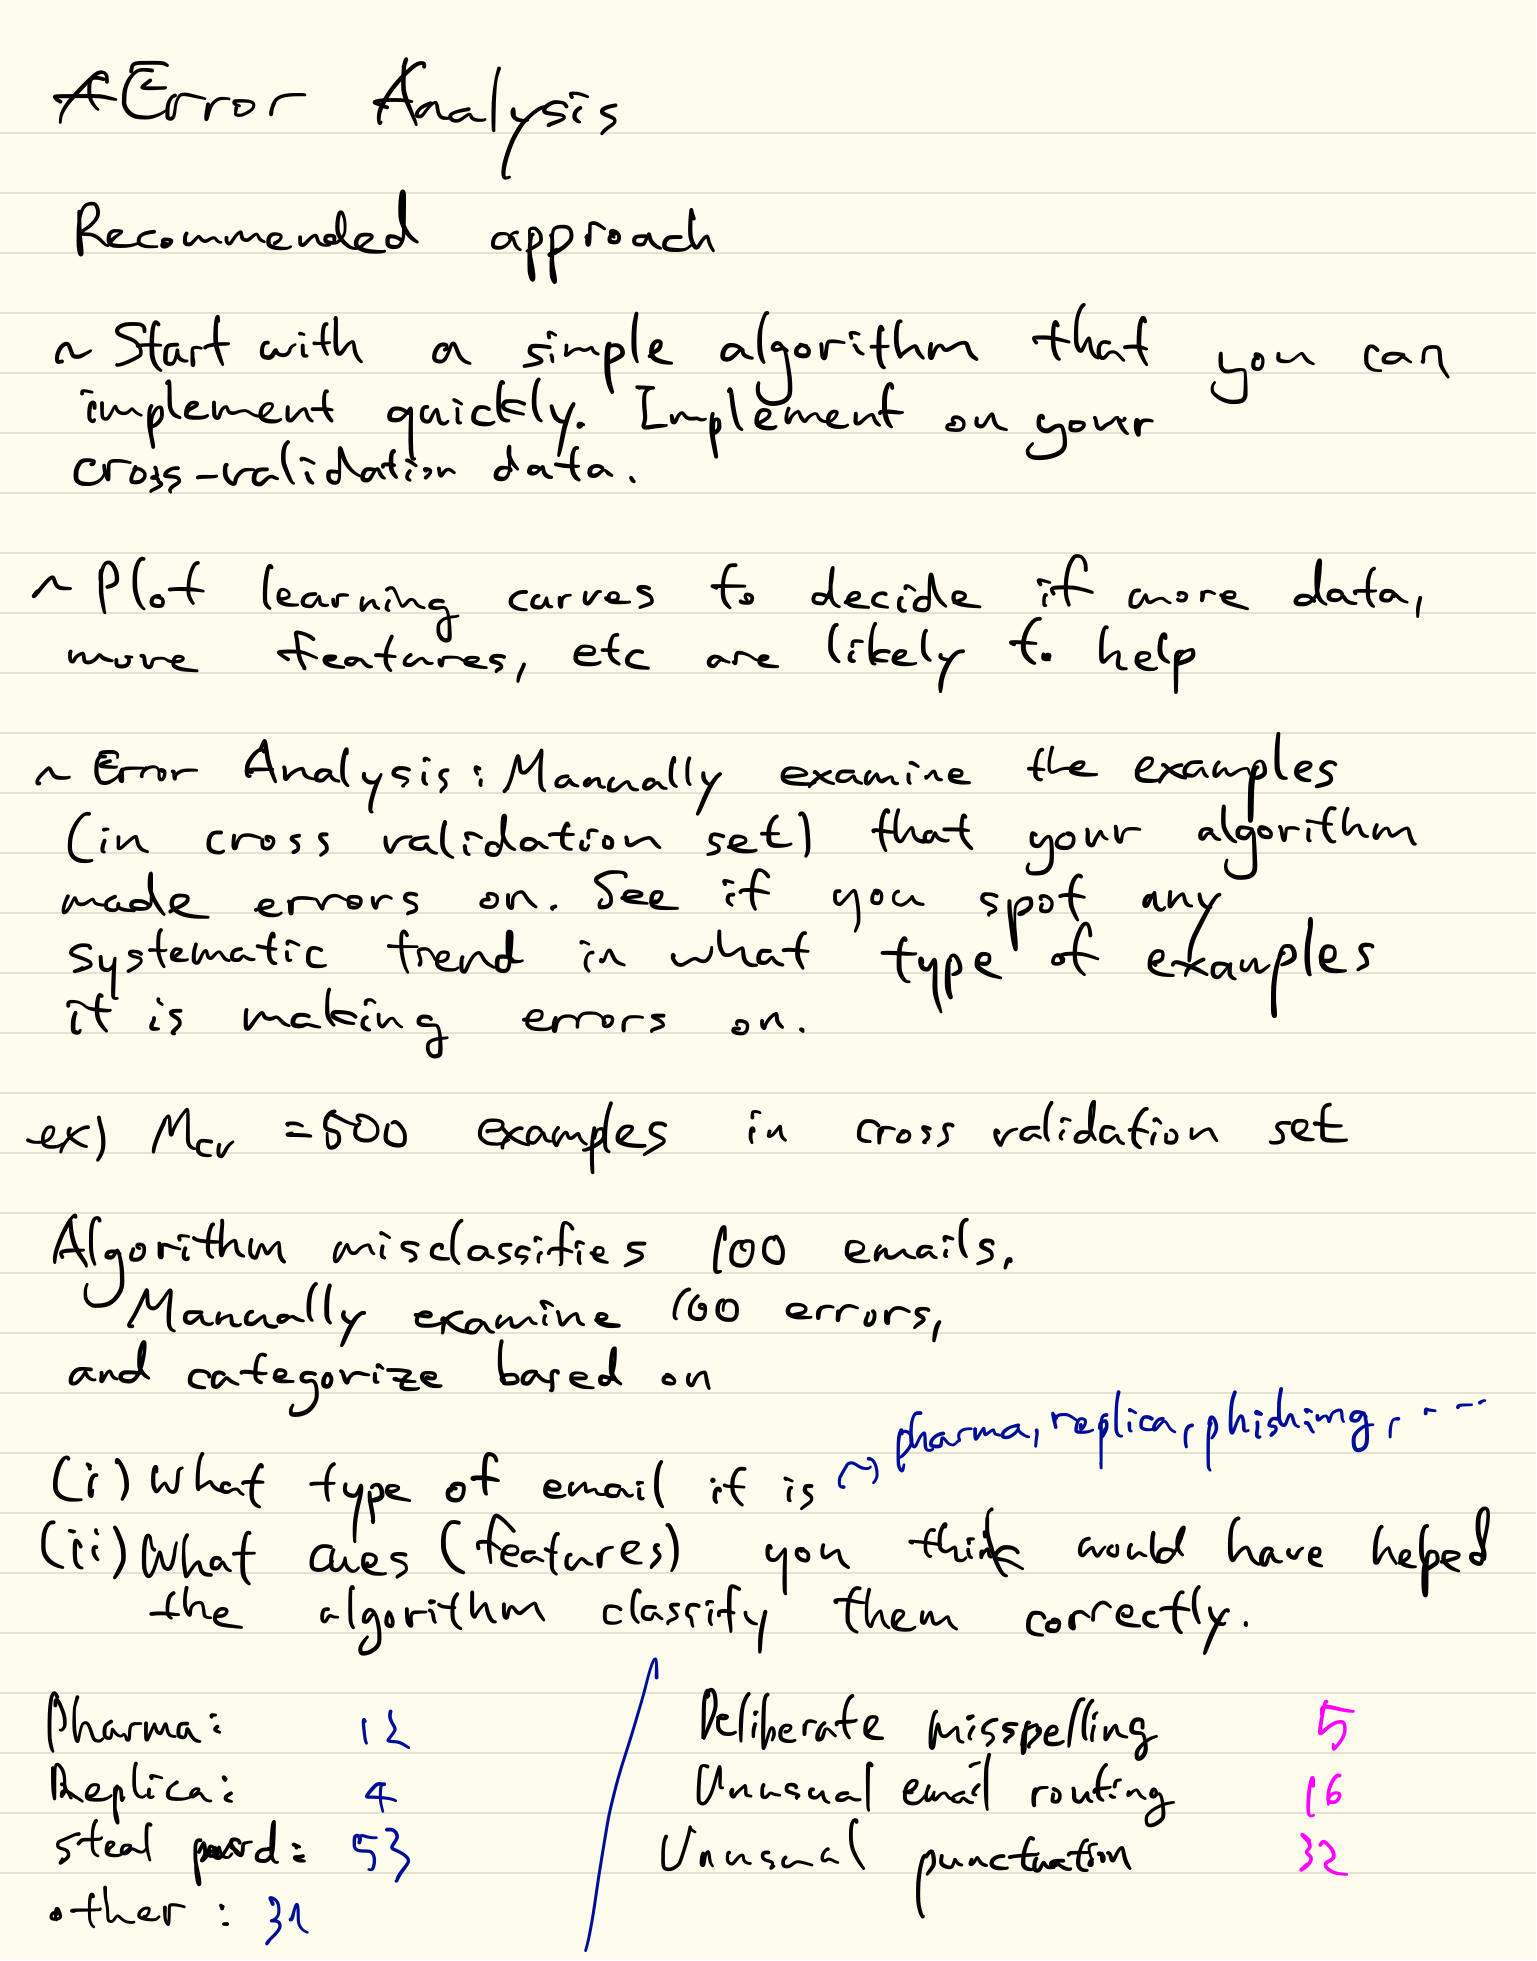 Error Analysis
Recommended approach
~ Start with a simple algorithm that you can
implement quickly. Implement on your
cross-validation data.
~ Plot learning curves to decide if more data,
more features, etc are likely to help
~ Error Analysis: Manually examine the examples
(in cross validation set) that your algorithm
made errors on. See if you spot any
systematic trend in what type of examples
it is making errors on.
ex) Mcv = 500 examples in cross validation set
Algorithm misclassifies 100 emails.
Manually examine 100 errors,
and categorize based on
pharma, replica, phishing, ....
(i) What type of email it is
(ii) What cues (features) you think would have helped
the algorithm classify them correctly.
Pharma: 12
Replica: 4
steal : 53
other : 31
Deliberate misspelling 5
Unusual email routing 16
Unusual punctuation 32